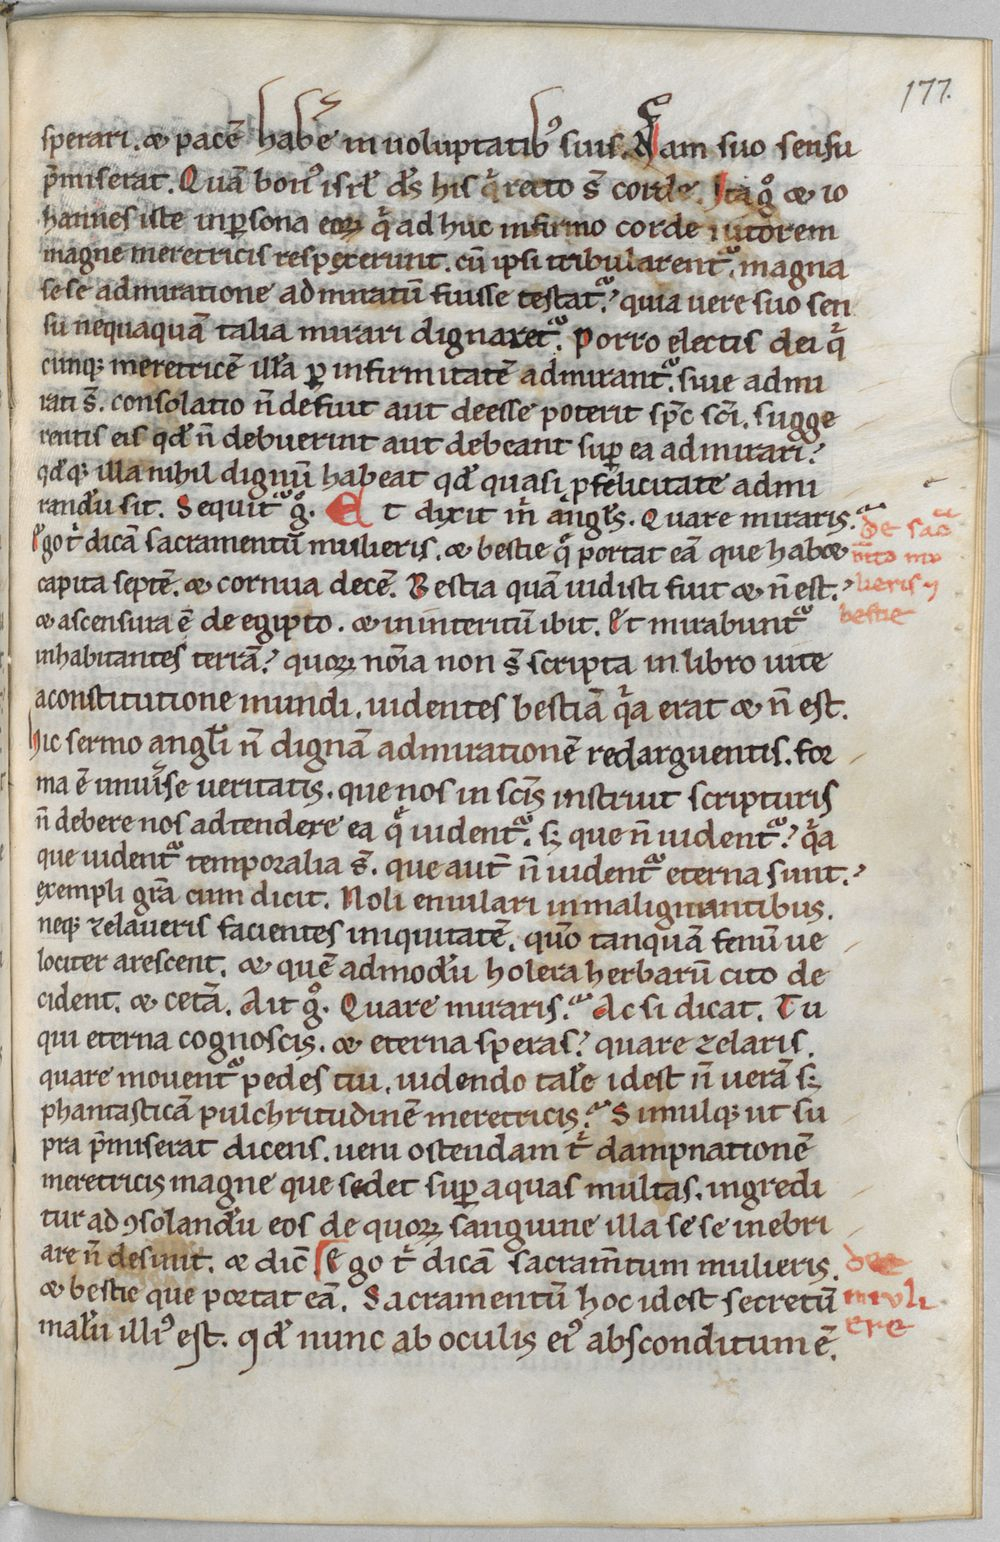 177.
sperari. & pacē habe̅ in uoluptatibꝰ suis. Nam suo sensu
p̄miserat. Quā bonꝰ isrł ds̄ his q̇ recto s̄ corde. Ita g̊ & io
hannes iste in ꝑsona eoꝝ q̇ ad huc infirmo corde iutorem
magne meretricis respexerunt. cū ipsi tribularent᷑. magna
sese admiratione admiratū fuisse testat᷑. quia uere suo sen
su nequaquā talia mirari dignaret᷑. Porro electis dei q̇
cunqꝫ meretricē illā ꝑ infirmitatē admirant᷑. siue admi
rati s̄. consolatio n̄ defuit aut deesse poterit sp̄c sc̄i. sugge
rentis eis qđ n̄ debuerint aut debeant suꝑ ea admirari.
qđqꝫ illa nihil dignū habeat qđ quasi ꝓ felicitate admi
randū sit. Sequit᷑ g̊. Et dixit m̄ angłs. Quare miraris.
Ego t̄ dicā sacramentū mulieris. & bestie q̄ portat eā que hab&
capita septē. & cornua decē. Bestia quā uidisti fuit & n̄ est.
& ascensura ē de egipto. & in interitū ibit. Et mirabunt᷑
inhabitantes terrā. quoꝝ nōia non s̄ scripta in libro uite
a constitutione mundi. uidentes bestiā q̇a erat & n̄ est.
Hic sermo angłi n̄ dignā admirationē redarguentis. for
ma ē uniuꝰse ueritatis. que nos in sc̄is instruit scripturis
n̄ debere nos adtendere ea q̄ uident᷑. sꝫ que n̄ uident᷑. q̇a
que uident᷑ temporalia s̄. que aut̄ n̄ uident᷑ eterna sunt.
exempli grā cum dicit. Noli emulari in malignantibus.
neqꝫ zelaueris facientes iniquitatē. quō tanquā fenū ue
lociter arescent. & quē admodū holera herbarū cito de
cident. & cetā. Ait g̊. Quare miraris. Ac si dicat. Tu
qui eterna cognoscis. & eterna speras. quare zelaris.
quare mouent᷑ pedes tui. uidendo tale idest n̄ uerā sꝫ
phantasticā pulchritudinē meretricis. Simulqꝫ ut su
pra p̄miserat dicens. ueni ostendam t̄ dampnationē
meretricis magne que sedet suꝑ aquas multas. ingredi
tur ad ꝯsolandū eos de quoꝝ sanguine illa sese inebri
are n̄ desinit. & dic̄ Ego t̄ dicā sacram̄tum mulieris.
& bestie que portat eā. Sacramentū hoc idest secretū
malū illiꝰ est. qđ nunc ab oculis eiꝰ absconditum ē.
de sac̄
m̄to mu
lieris ⁊
bestie
muli
ere